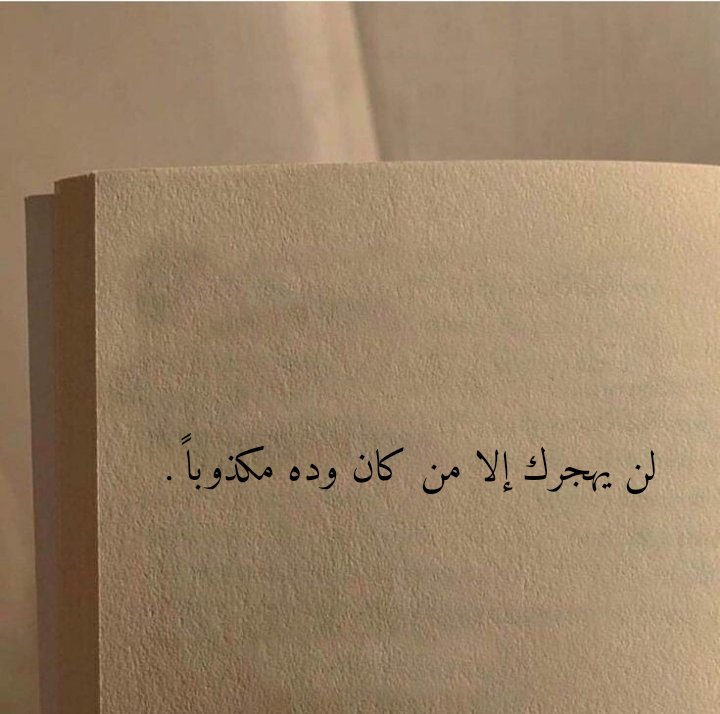 لن يهجرك إلا من كان وده مكذوباً .